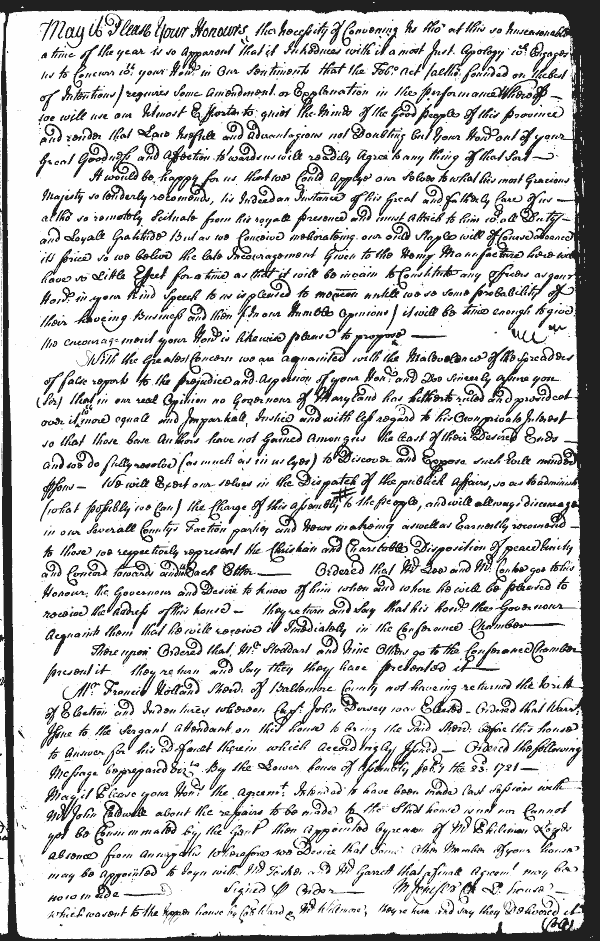 May it Please Your Honours, the necessity of Convening us tho' at this so unseasonable
a time of the year is so apparent that it Introduces with it a most Just Apology wch. Engages
us to Concurr wth. your Honrs. in Our Sentiments that the Tobo. Act (altho' founded on the best
of Intentions) requires Some Amendment or Explanation in the performance Whereof
we will use our Utmost Efforts to quiet the minds of the Good people of this Province
and render that Law Usefull and advantagious not Doubting but Your Honr. out of your
Great Goodness and Affection towards us will readily Agree to any thing of that Sort —
It would be happy for us that we Could Applye our Selves to what his most Gracious
Majesty so tenderly recomends, his Indeed an Instance of his Great and fatherly Care of us —
altho so remotely Scituate from his royall presence and must Attach to him in all Duty —
and Loyall Gratitude But as we Conceive meliorating our old Staple will of Consequence
its price so we believe the late Incouragement Given to the Hemp Manufacture here will
have so Little Effect for a time as that it will be in vain to Constitute any Officers as your
Honr. in your kind Speech to us is pleased to mention untill we see some probability of
their haveing Business and then (In our Humble Opinions) it will be time enough to give
the encouragement your Honr. is likewise please to propose —
With the Greatest Concern we are acquainted with the Malevolence of the spreaders
of false reports to the prejudice and Aspersion of your Honr. and Doe Sincerely assure you
(Sr.) that in our real Opinion no Governour of Maryland has hitherto ruled and presided
over it wth. more equall and Impartiall Justice and with less regard to his Own private Interest
so that those base Authors have not Gained Among us the least of their Desired Ends —
And we do fully resolve (as much as in us lyes) to Discover and Expose such Evill minded
psons — We will Exert our selves in the Dispatch of the publick Affairs, so as to diminish
(what possibly we Can) the Charge of this Assembly to the people, and will allways discourage
in our Severall Countys Faction parties and News makeing as well as Earnestly recomend —
to those we respectively represent the Christian and Charitable Disposition of peace Unity
and Concord towards and wth. Each Other — Ordered that Mr. Lee and Mr. go to his
Honour the Governour and Desire to know of him when and where he will be pleased to
receive the address of this house — they return and Say that his honr. the Governour
Acquaints them that he will receive it Imediately in the Conference Chamber
Thereupon Ordered that Mr. Stoddart and Nine Others go to the Conference Chamber
present it they return and Say they they have presented it —
Mr. Francis Holland Sherr. of Baltemore County not haveing returned the Writt
of Election and Indentures whereon Capt. John Dorsey was Elected — Ordered that Warrt.
Issue to the Sergant Attendant on this house to bring the said Sherr. before this house
to Answer for his default therein which Accordingly Issued — Ordered the following
Message be prepared vizt. By the Lower house of Assembly febry. the 23. 1721 —
May it Please your Honrs. the Agreemt. Intended to have been made last sessions with
Mr. John Caldwell about the repairs to be made to the Stadt house is not nor Cannot
yet be Consummated by the Gent. then Appointed by reason of Mr. Philimon Lloyds
absence from Annapolis wherefore we Desire that Some Other Member of your house
may be appointed to Joyn with Mr. Tasker and Mr. Garrett that a finall Agreemt. may be
now made — Signed P Order — M Jenifer Cl L. house —
which was sent to the upper house by Ward & Mr. , they return and Say they Delivered it